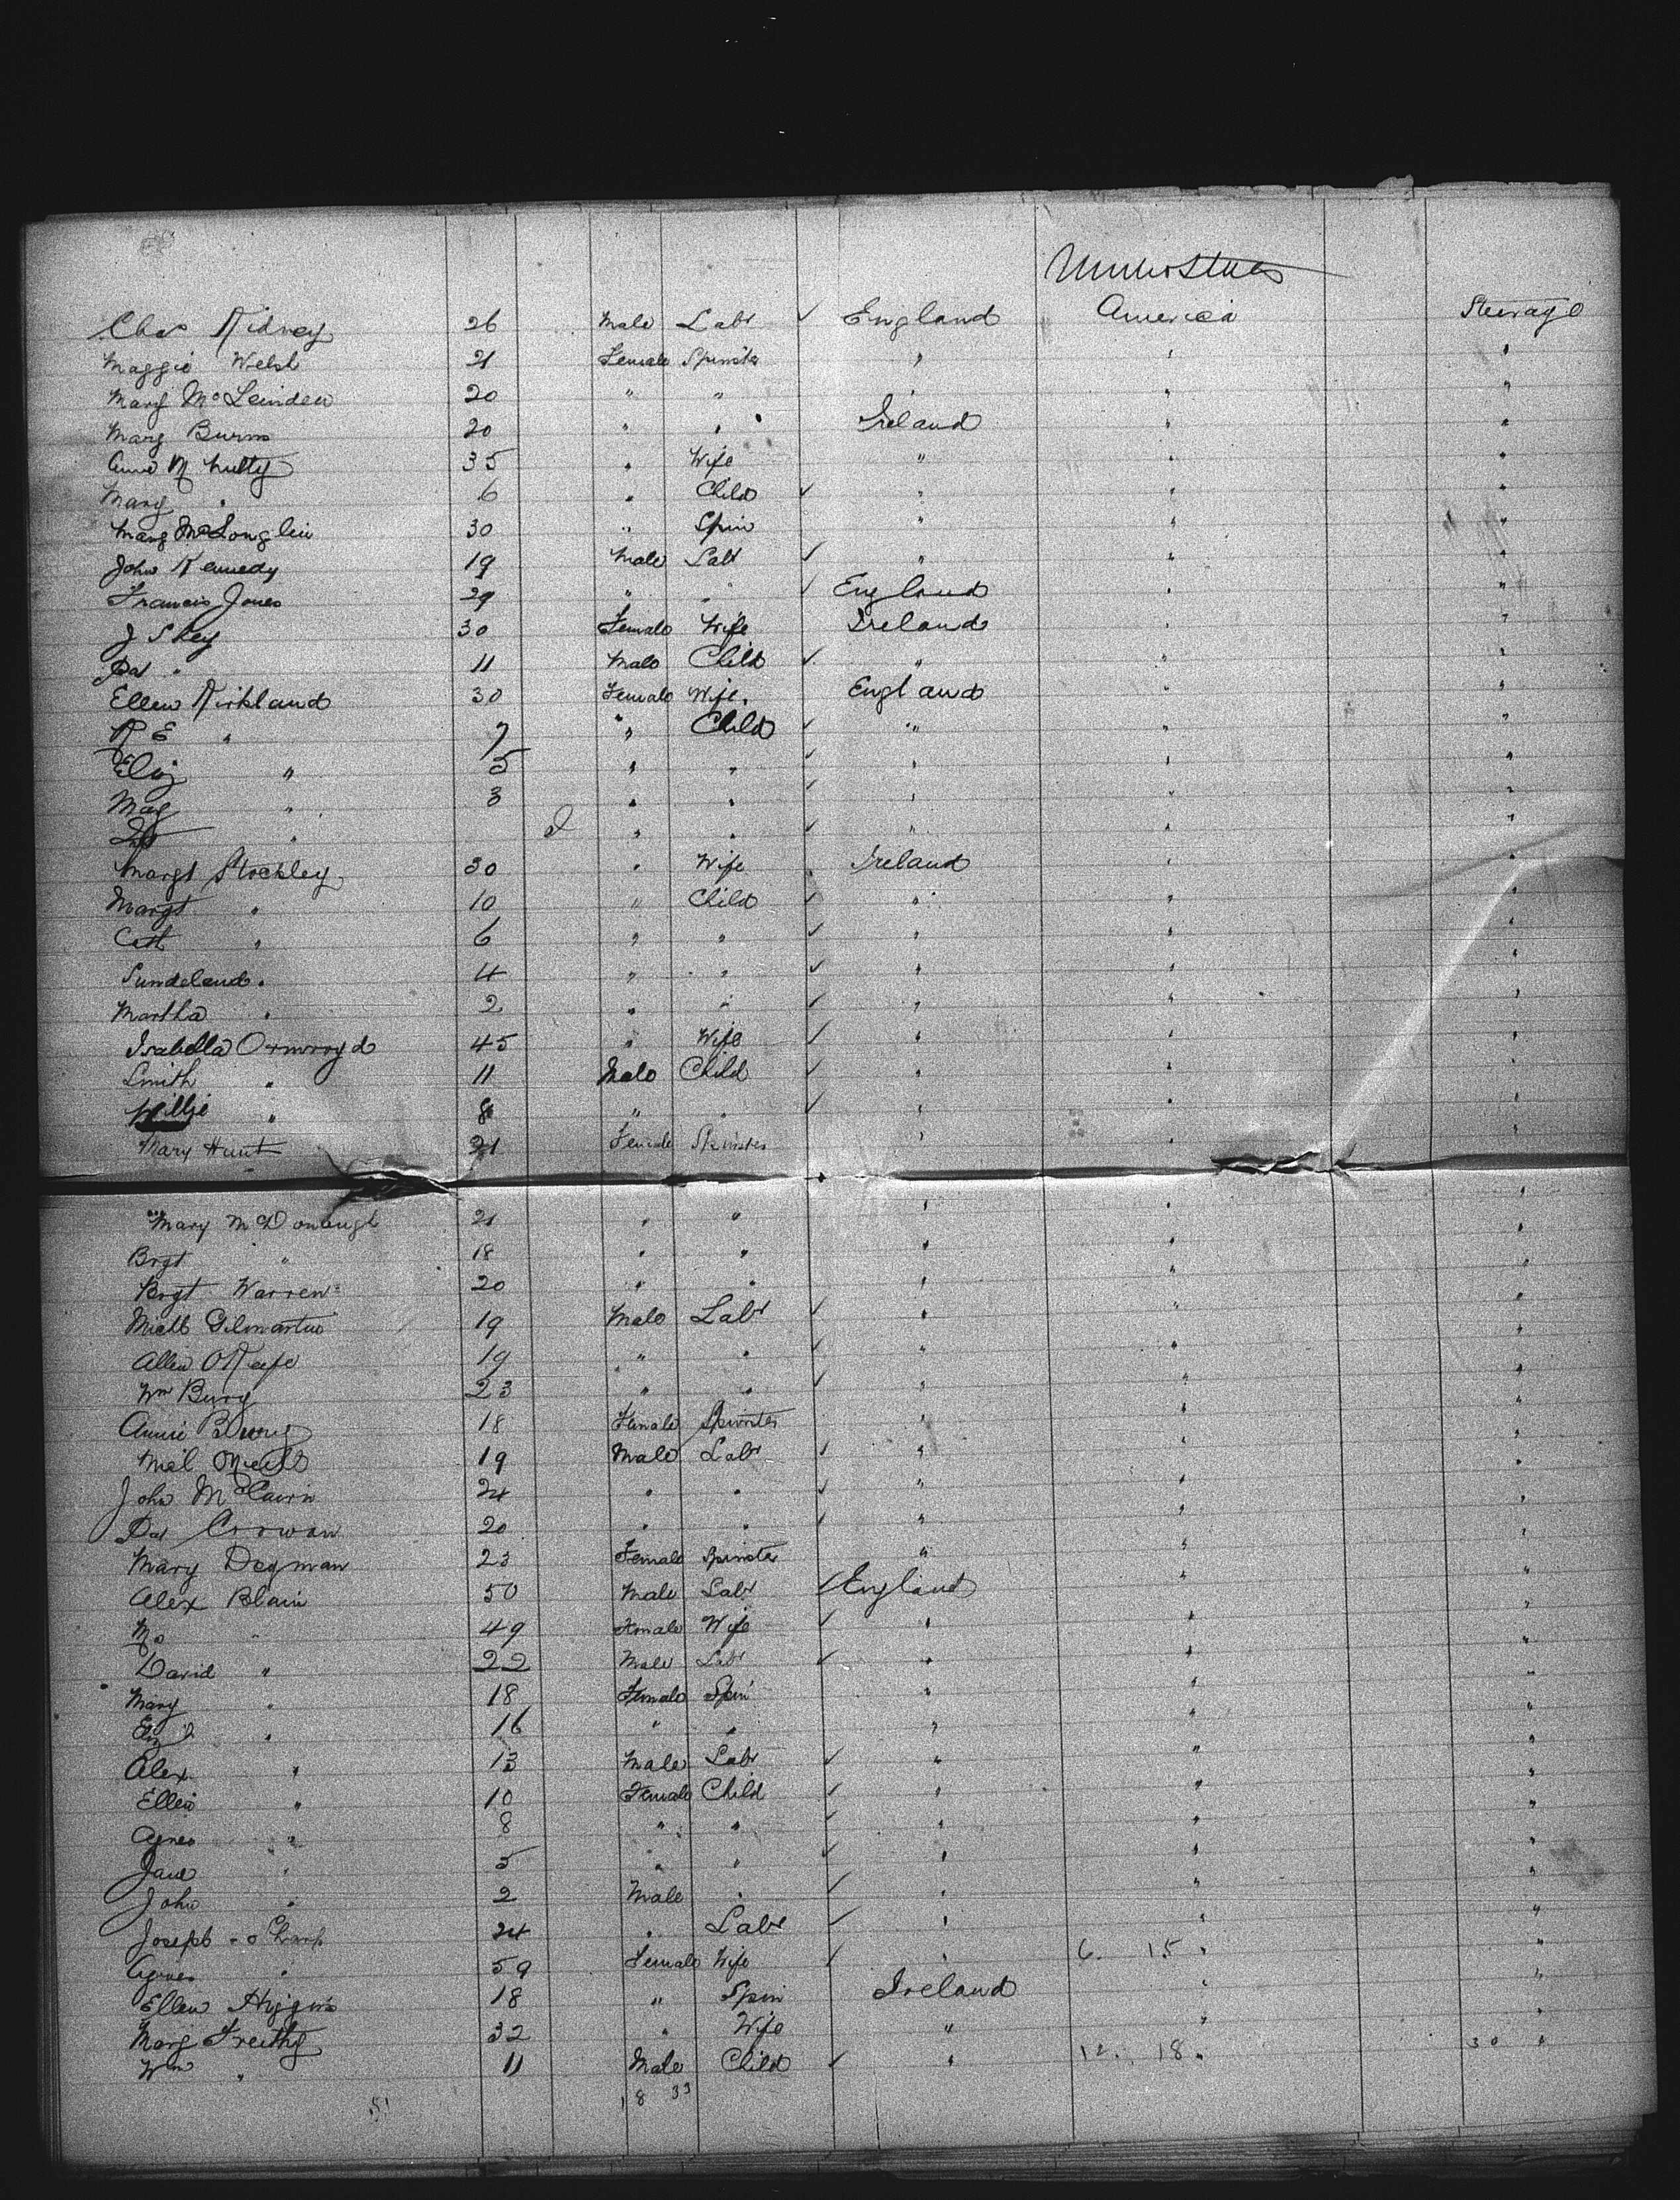 America
Chas Kidney 26 Male Labr ✓ England America Steerage
Maggie Welsh 21 Female Spinster " " "
Mary McLeinden 20 " " " " "
Mary Burns 20 " " Ireland " "
Anne 35 " Wife " " "
Mary " 6 " Child ✓ " " "
Marg McLonglin 30 " Spin " " "
John Kennedy 19 Male Labr ✓ " " "
Francis Jones 29 " " ✓ England " "
J Skey 30 Female Wife Ireland " "
Pat " 11 Male Child ✓ " " "
Ellen Kirkland 30 Female Wife England " "
R E " 7 " Child ✓ " " "
Eliz " 5 " " ✓ " " "
Mag " 3 " " ✓ " " "
" " " ✓ " " "
Margt Stockley 30 " Wife Ireland " "
Margt " 10 " Child ✓ " " "
Cath " 6 " " ✓ " " "
Sundeland " 4 " " ✓ " " "
Martha " 2 " " ✓ " " "
Isabella Ormroyd 45 " Wife ✓ " " "
Smith " 11 Male Child ✓ " " "
Willie " 8 " " ✓ " " "
Mary Hunt 21 Female Spinster " " "
Mary McDonaugh 21 " " " " "
Brgt " 18 " " " " "
Brgt Warren 20 " " " " "
Michl Gilmartin 19 Male Labr ✓ " " "
Allen OKeefe 19 " " ✓ " " "
Wm Burg 23 " " ✓ " " "
Annie 18 Female Spinster " " "
19 Male Labr ✓ " " "
John McCawn 24 " " ✓ " " "
Pat Crowan 20 " " ✓ " " "
Mary Degman 23 Female Spinster " " "
Alex Blain 50 Male Labr ✓ England " "
" 49 Female Wife ✓ " " "
David " 22 Male Labr ✓ " " "
Mary " 18 Female Spin " " "
Eliz " 16 " " " " "
Alex " 13 Male Labr ✓ " " "
Ellen " 10 Female Child ✓ " " "
Agnes " 8 " " ✓ " " "
Jane " 5 " " ✓ " " "
John " 2 Male " ✓ " " "
Joseph Sharp 24 " Labr ✓ " " "
Agnes " 59 Female Wife ✓ " 6 15 " "
Ellen Higgins 18 " Spin Ireland " "
Marg Freithy 32 " Wife " " "
Wm " 11 Male Child ✓ " 12 18 " 30 "
18 33
51